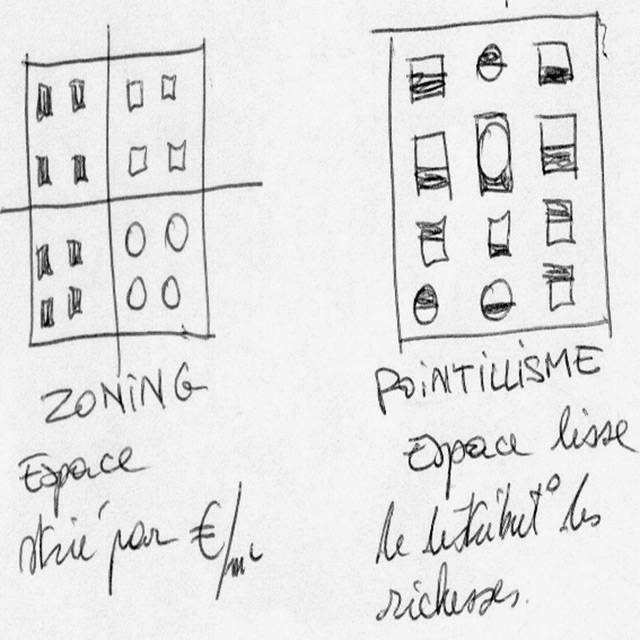 ZONING
Espace
strié par €/m²
POINTILLISME
Espace lisse
de distribut° des
richesses.